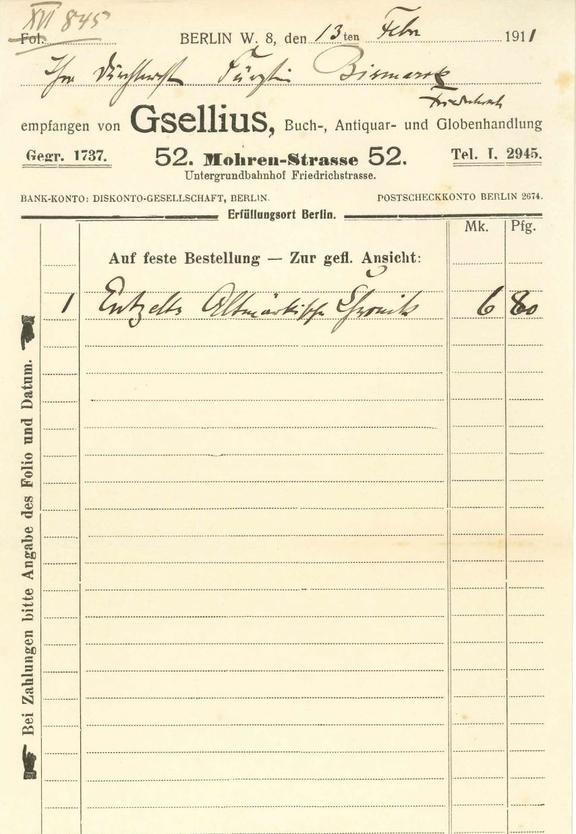 XVI 845
Fol. BERLIN W. 8, den 13ten Febr 1911
Ihre Durchlaucht Fürstin Bismarck
Friedrichsruh
empfangen von Gsellius, Buch-, Antiquar- und Globenhandlung
Gegr. 1737. 52. Mohren-Strasse 52. Tel. I. 2945.
Untergrundbahnhof Friedrichstrasse.
BANK-KONTO: DISKONTO-GESELLSCHAFT, BERLIN. POSTSCHECKKONTO BERLIN 2674.
Erfüllungsort Berlin.
Mk. Pfg.
Auf feste Bestellung — Zur gefl. Ansicht:
1 Entzelts Altmärkische Chronik 6 80
Bei Zahlungen bitte Angabe des Folio und Datum.